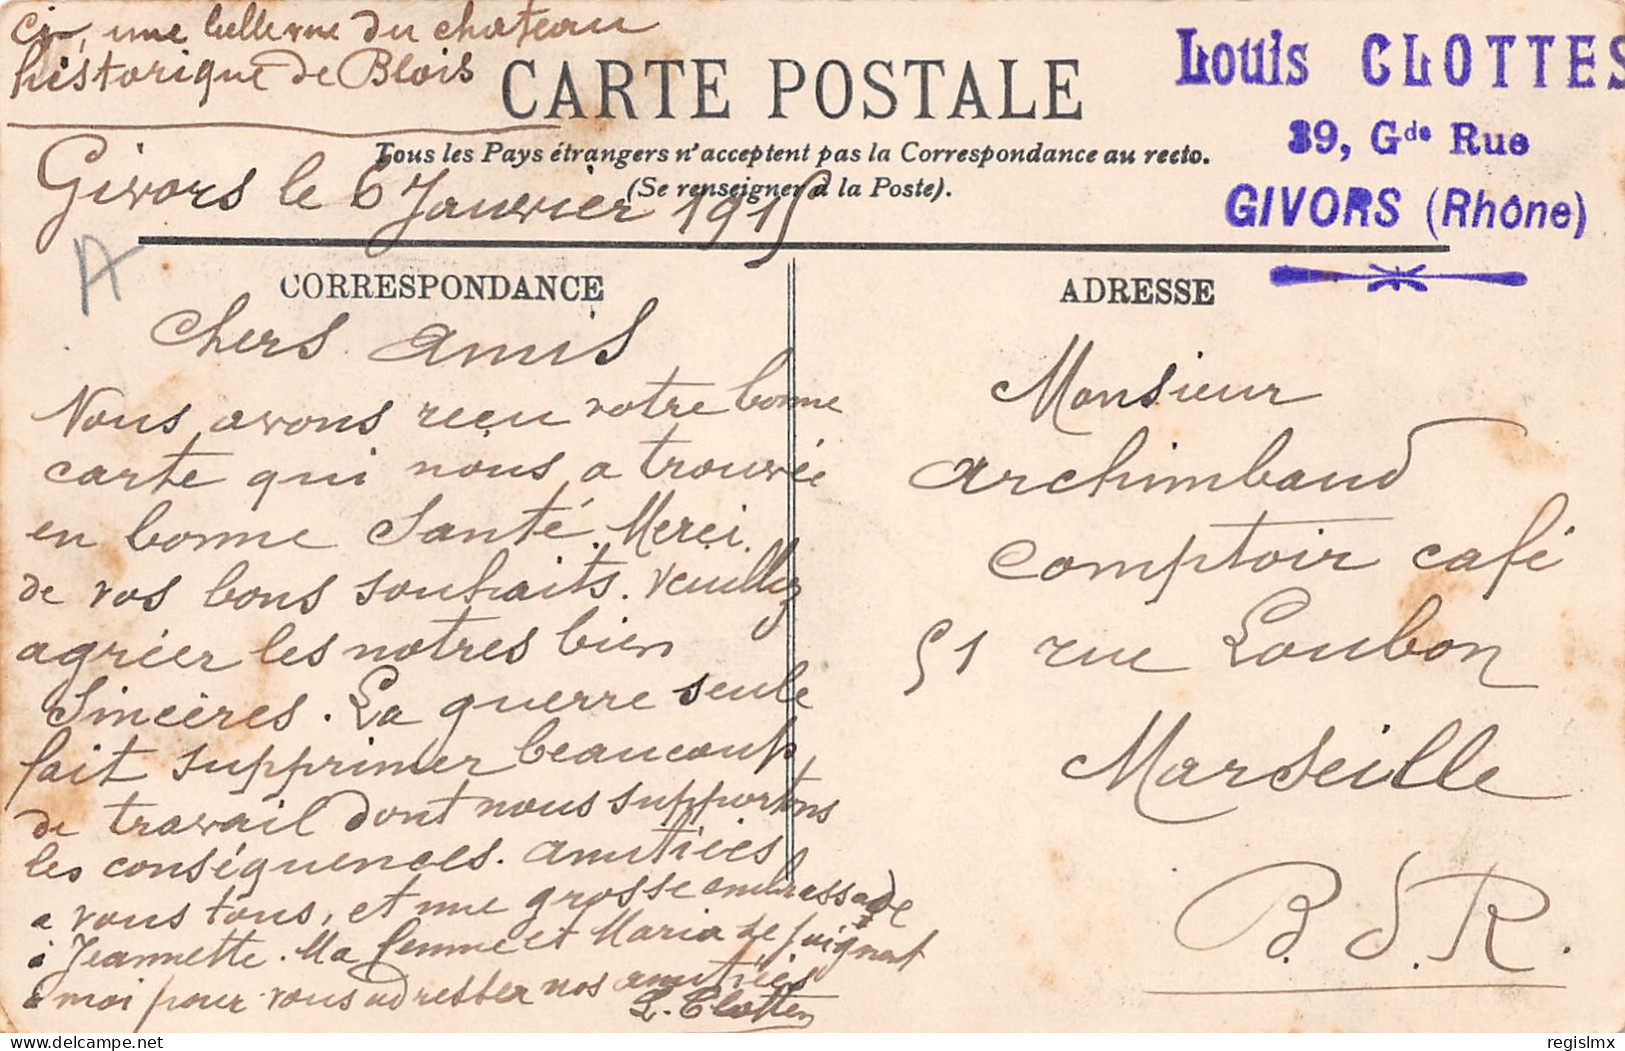 Ci, une belle vue du chateau
historique de Blois
CARTE POSTALE
Tous les Pays étrangers n'acceptent pas la Correspondance au recto.
(Se renseigner à la Poste).
Louis CLOTTES
39, Gde Rue
GIVORS (Rhône)
Givors le 6 Janvier 1915
A
CORRESPONDANCE
Chers amis
Nous avons reçu votre bonne
carte qui nous a trouvée
en bonne Santé. Merci
de vos bons souhaits. Veuillez
agréer les notres bien
Sincères. La guerre seule
fait supprimer beaucoup
de travail dont nous supportons
les conséquences. amitiées
a vous tous, et une grosse embrassade
à Jeannette. Ma femme et Maria se joignent
à moi pour vous adresser nos amitiées
L. Clottes
ADRESSE
Monsieur
Archimbaud
Comptoir café
51 rue Loubon
Marseille
B. d. R.
regislmx